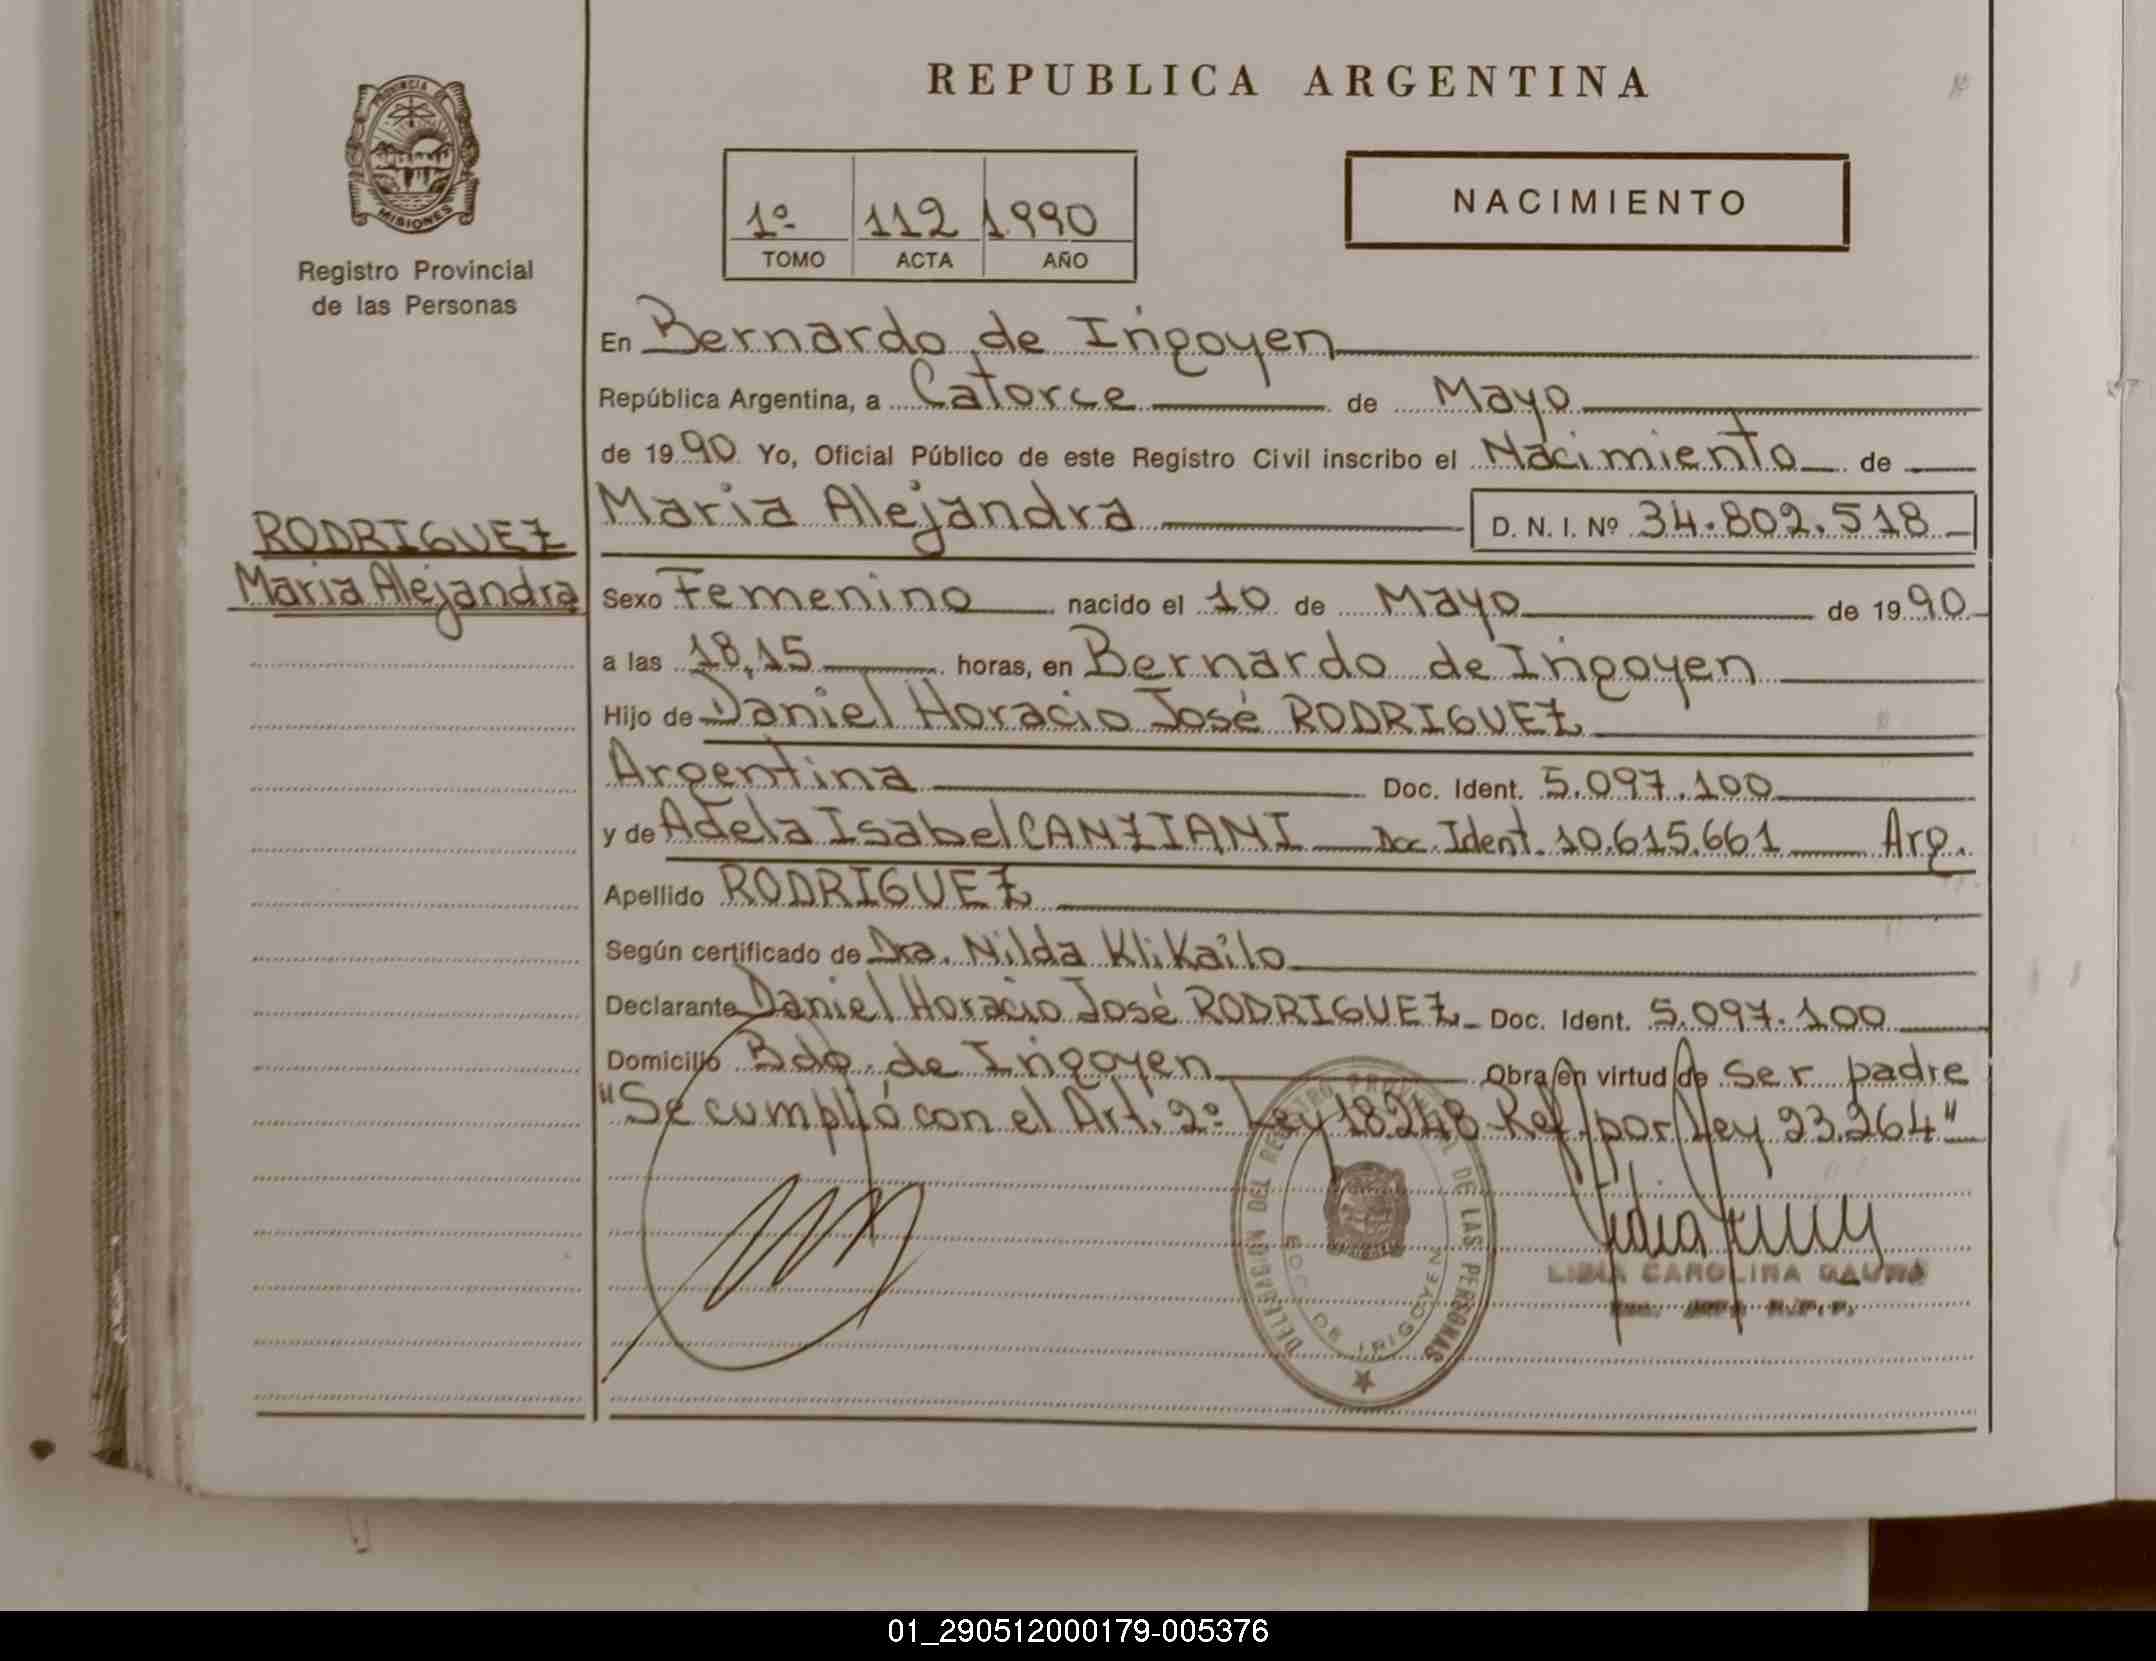 REPUBLICA ARGENTINA
PROVINCIA DE
MISIONES
Registro Provincial
de las Personas
1º 112 1.990
TOMO ACTA AÑO
NACIMIENTO
En Bernardo de Irigoyen
República Argentina, a Catorce de Mayo
de 1990 Yo, Oficial Público de este Registro Civil inscribo el Nacimiento de
Maria Alejandra D. N. I. Nº 34.802.518
RODRIGUEZ
Maria Alejandra
Sexo Femenino nacido el 10 de Mayo de 1990
a las 18,15 horas, en Bernardo de Irigoyen
Hijo de Daniel Horacio José RODRIGUEZ
Argentina Doc. Ident. 5.097.100
y de Adela Isabel CANZIANI Doc. Ident. 10.615.661 Arg.
Apellido RODRIGUEZ
Según certificado de Dra. Nilda Klikailo
Declarante Daniel Horacio José RODRIGUEZ Doc. Ident. 5.097.100
Domicilio Bdo. de Irigoyen Obra en virtud de ser padre
"Se cumplió con el Art. 2º Ley 18.248 Ref. por Ley 23.264"
DELEGACION DEL REGISTRO PROVINCIAL DE LAS PERSONAS
BDO. DE IRIGOYEN
LIDIA CAROLINA
01_290512000179-005376